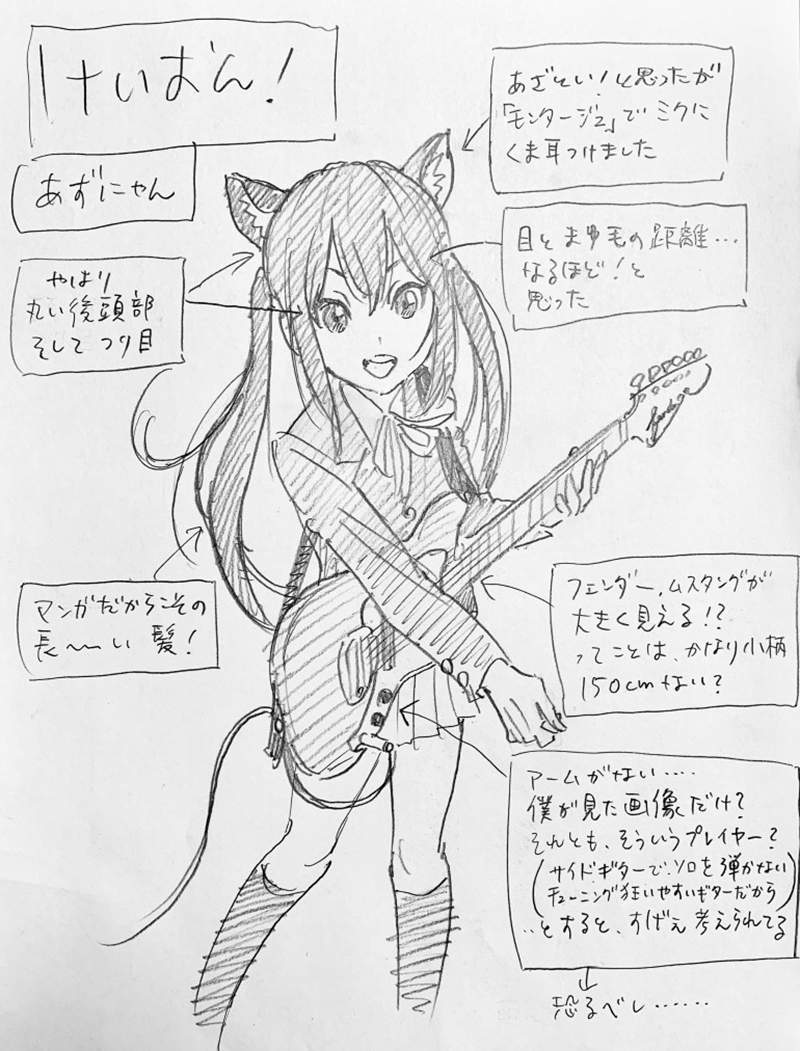 けいおん！
あずにゃん
あざとい！と思ったが
「モンタージュ」でミクに
くま耳つけました
目とまゆ毛の距離…
なるほど！と
思った
やはり
丸い後頭部
そして つり目
マンガだからこその
長〜い 髪！
フェンダー．ムスタングが
大きく見える!?
ってことは、かなり小柄
150cmない？
アームがない‥‥
僕が見た画像だけ？
それとも、そういうプレイヤー？
(サイドギターで、ソロを弾かない
チューニング狂いやすいギターだから)
‥とすると、すげぇ考えられてる
恐るべし……